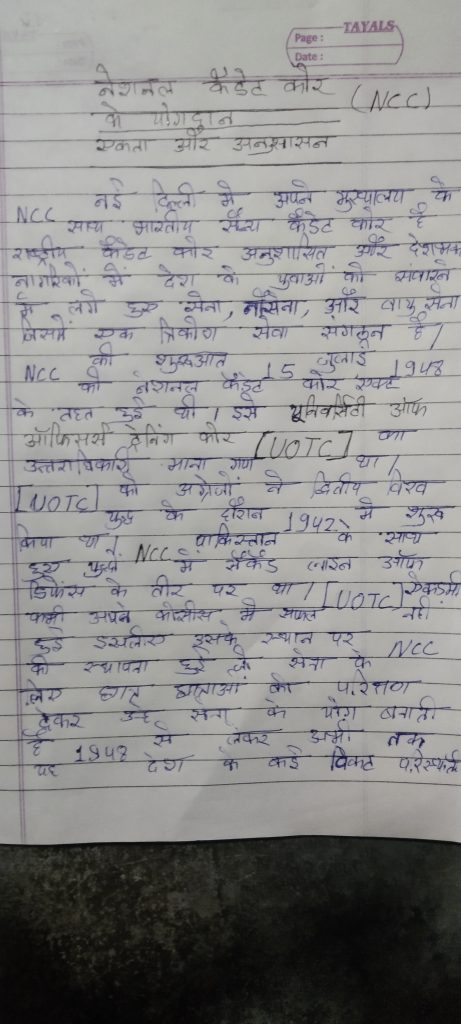 TAYALS
Page :
Date :
नेशनल कैडेट कोर (NCC)
के योगदान
एकता और अनुशासन
नई दिल्ली में अपने मुख्यालय के
NCC साथ भारतीय सैन्य कैडेट कोर है
राष्ट्रीय कैडेट कोर अनुशासित और
नागरिकों में देश के युवाओं को संवारने
में लगे हुए सेना, नौसेना, और वायु सेना
जिसमें एक त्रिकोण सेवा संगठन है/
की शुरुआत 15 जुलाई 1948
NCC को नेशनल कैडेट कोर एक्ट
के तहत हुई थी। इसे यूनिवर्सिटी ऑफ
ऑफिसर्स ट्रेनिंग कोर [UOTC] का
उत्तराधिकारी माना गया था।
[UOTC] को अग्रेजों ने द्वितीय विश्व
युद्ध के दौरान 1942 में शुरू
किया था। पाकिस्तान के साथ
हुए NCC में सैकंड लाइन ऑफ
डिफेंस के तौर पर था। [UOTC] ऐकेडमी
कभी अपने में सफल नहीं
हुई इसलिए उसके स्थान पर NCC
की स्थापना हुई जो सेना के
लिए छात्र छात्राओं को
देकर उन्हे सेना के योग बनाती
है 1948 से लेकर अभी तक
यह देश के कई विकट